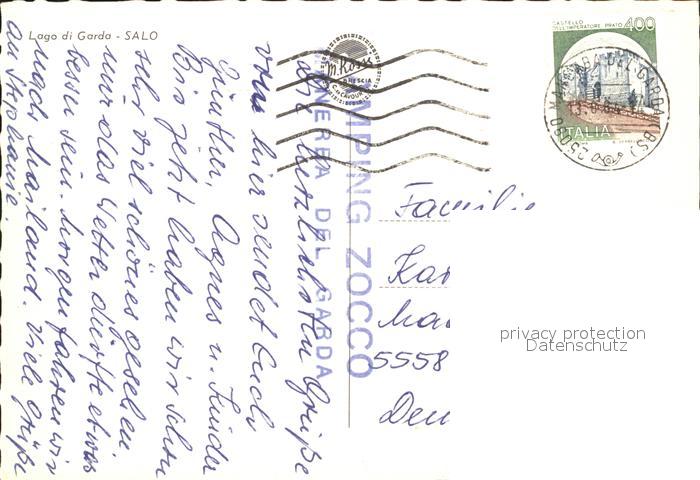 Lago di Garda - SALO
Die herzlichsten Grüße
von hier sendet Euch
Günther, Agnes u. Kinder
Bis jetzt haben wir schon
sehr viel schönes gesehen
nur das Wetter dürfte etwas
besser sein. Morgen fahren wir
nach Mailand. Viele Grüße
an Stephanie.
CAMPING ZOCCO
MANERBA DEL GARDA
M. Rossi
BRESCIA
C. CAVOUR
CASTELLO
DELL'IMPERATORE PRATO 400
ITALIA
MANERBA DEL GARDA (BS)
25080
Familie
Kar
Mar
5558
Deu
privacy protection
Datenschutz